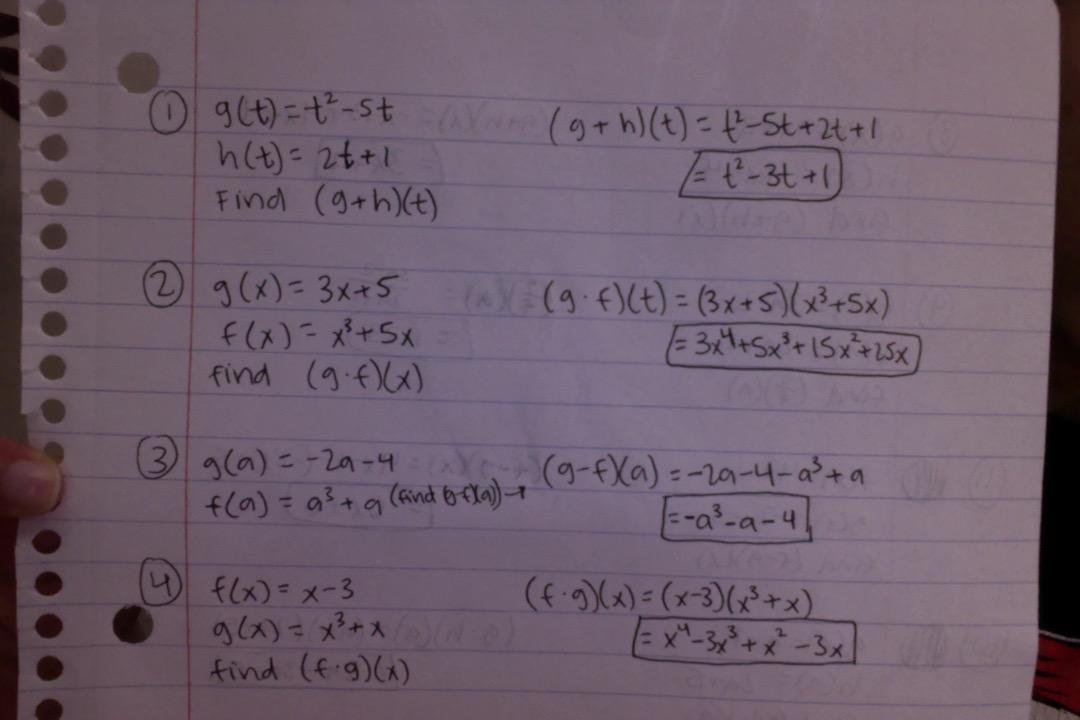 ① g(t) = t² - 5t
h(t) = 2t + 1
Find (g+h)(t)
(g+h)(t) = t² - 5t + 2t + 1
= t² - 3t + 1
② g(x) = 3x + 5
f(x) = x³ + 5x
find (g·f)(x)
(g·f)(t) = (3x+5)(x³+5x)
= 3x⁴ + 5x³ + 15x² + 25x
③ g(a) = -2a - 4
f(a) = a³ + a (find (g-f)(a)) →
(g-f)(a) = -2a - 4 - a³ + a
= -a³ - a - 4
④ f(x) = x - 3
g(x) = x³ + x
find (f·g)(x)
(f·g)(x) = (x-3)(x³+x)
= x⁴ - 3x³ + x² - 3x